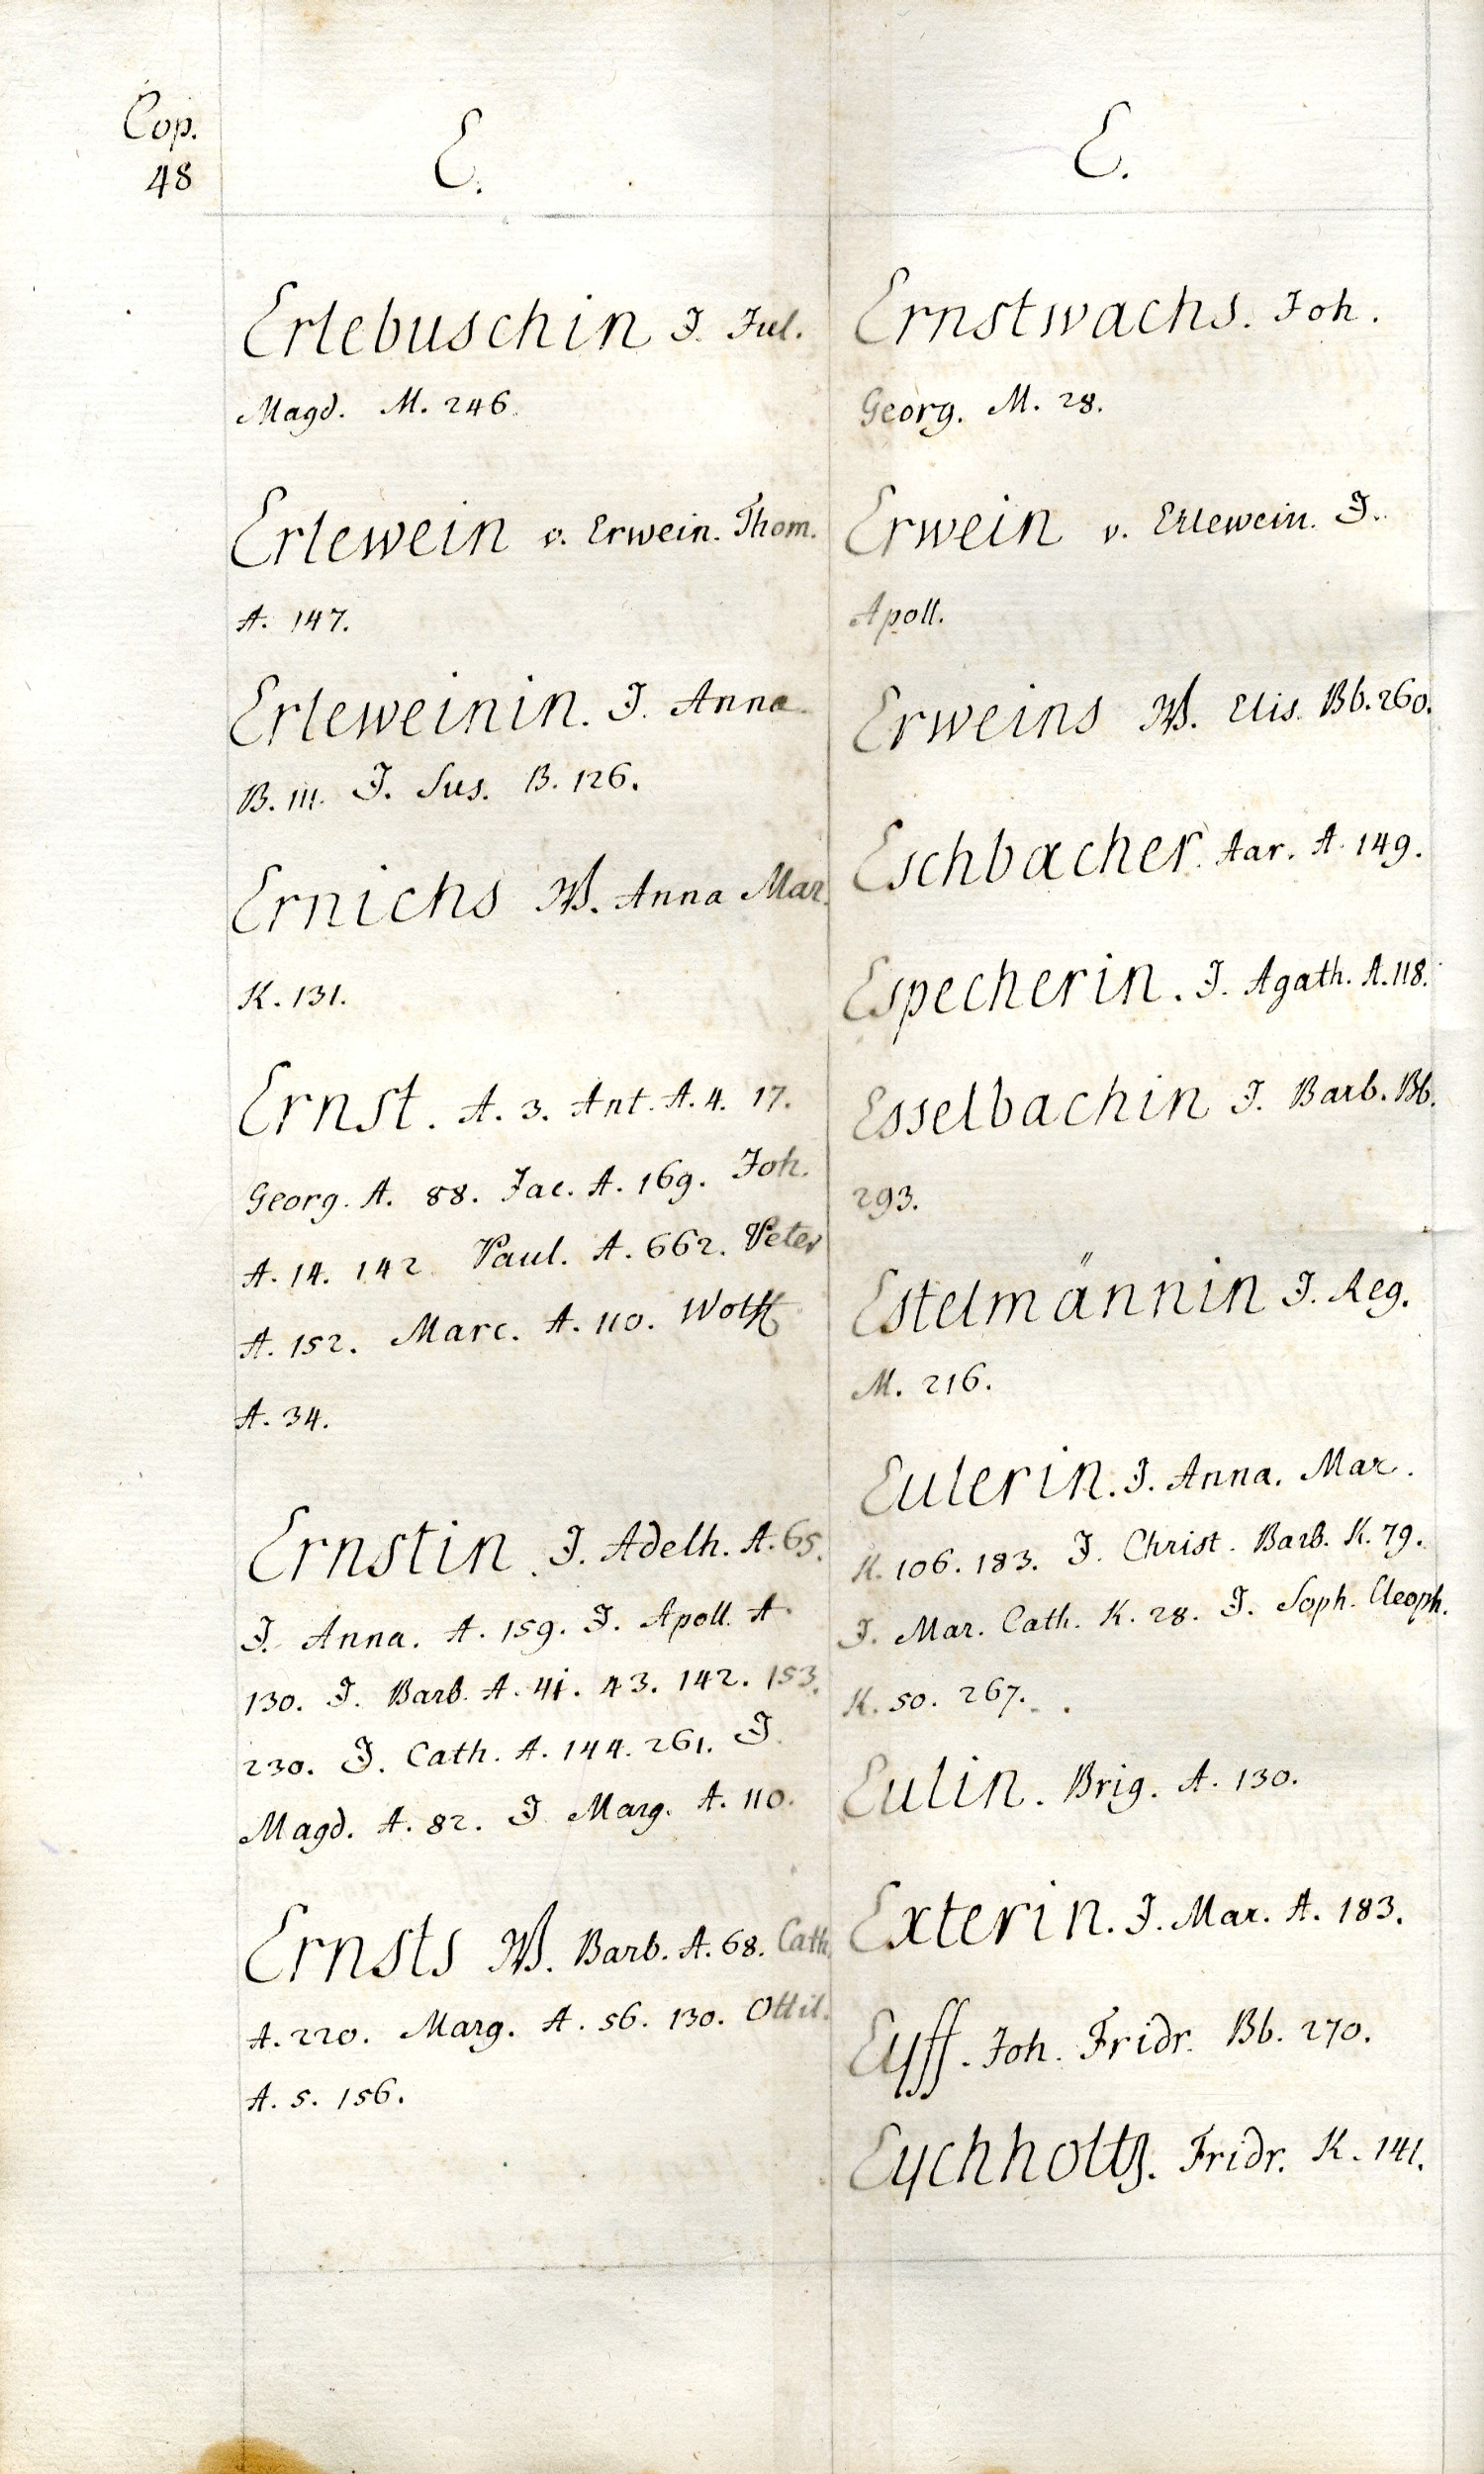 Cop.
48
E.
Erlebuschin J. Jul.
Magd. M. 246.
Erlewein v. Erwein. Thom.
A. 147.
Erleweinin. J. Anna
B. 111. J. Sus. B. 126.
Ernichs W. Anna Mar.
K. 131.
Ernst. A. 3. Ant. A. 4. 17.
Georg. A. 88. Jac. A. 169. Joh.
A. 14. 142. Paul. A. 662. Peter
A. 152. Marc. A. 110. Wolff
A. 34.
Ernstin. J. Adelh. A. 65.
J. Anna. A. 159. J. Apoll. A.
130. J. Barb. A. 41. 43. 142. 153.
230. J. Cath. A. 144. 261. J.
Magd. A. 82. J. Marg. A. 110.
Ernsts W. Barb. A. 68. Cath.
A. 220. Marg. A. 56. 130. Ottil.
A. 5. 156.
E.
Ernstwachs. Joh.
Georg. M. 28.
Erwein v. Erlewein. J.
Apoll.
Erweins W. Elis. Bb. 260.
Eschbacher. Aar. A. 149.
Especherin. J. Agath. A. 118.
Esselbachin J. Barb. Bb.
293.
Estelmännin J. Reg.
M. 216.
Eulerin. J. Anna. Mar.
K. 106. 183. J. Christ. Barb. K. 79.
J. Mar. Cath. K. 28. J. Soph. Cleoph.
K. 50. 267.
Eulin. Brig. A. 130.
Exterin. J. Mar. A. 183.
Eyff. Joh. Fridr. Bb. 270.
Eychholtz. Fridr. K. 141.